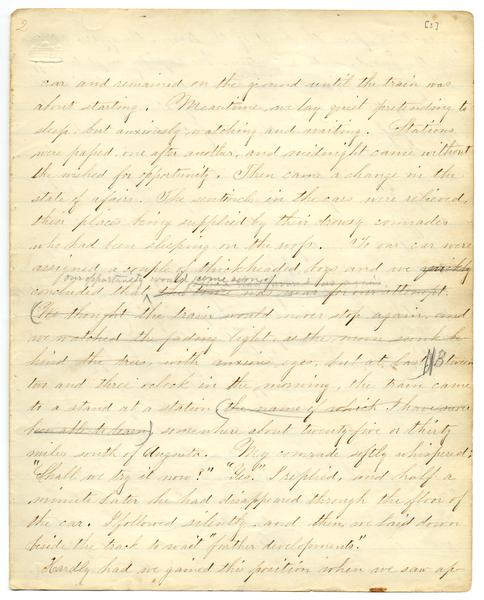 2
[3]
car and remained on the ground until the train was
about starting. Meantime, we lay quiet pretending to
sleep, but anxiously watching and waiting. Stations
were passed, one after another, and midnight came without
the wished for opportunity. Then came a change in the
state of affairs. The sentinels in the cars were relieved,
their places being supplied by their drowsy comrades
who had been sleeping on the roofs. To our car were
assigned a couple of thickheaded boys and we quickly
our opportunity would come soon
concluded that the time was near for our attempt.
(We thought the train would never stop again, and
we watched the fading light, as the moon sunk be-
hind the trees, with anxious eyes, but at last) Between
two and three o'clock in the morning, the train came
to a stand at a station (the name of which I have never
been able to learn) somewhere about twenty five or thirty
miles south of Augusta. My comrade softly whispered;
"Shall we try it now?" "Yes." I replied, and half a
minute later he had disappeared through the floor of
the car. I followed silently, and then, we laid down
beside the track to wait "further developments".
Hardly had we gained this position when we saw ap-